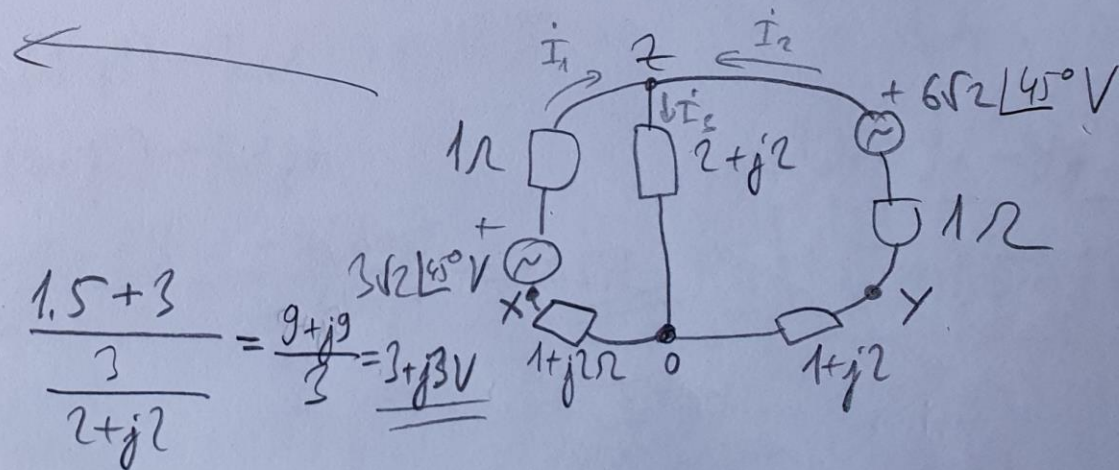 İ₁
Z
İ₂
+ 6√2∠45° V
1Ω
İ₃
2+j2
1Ω
+
3√2∠45° V
X
1+j2Ω
0
1+j2
Y
1.5+3 / (3 / 2+j2) = 9+j9 / 3 = 3+j3V